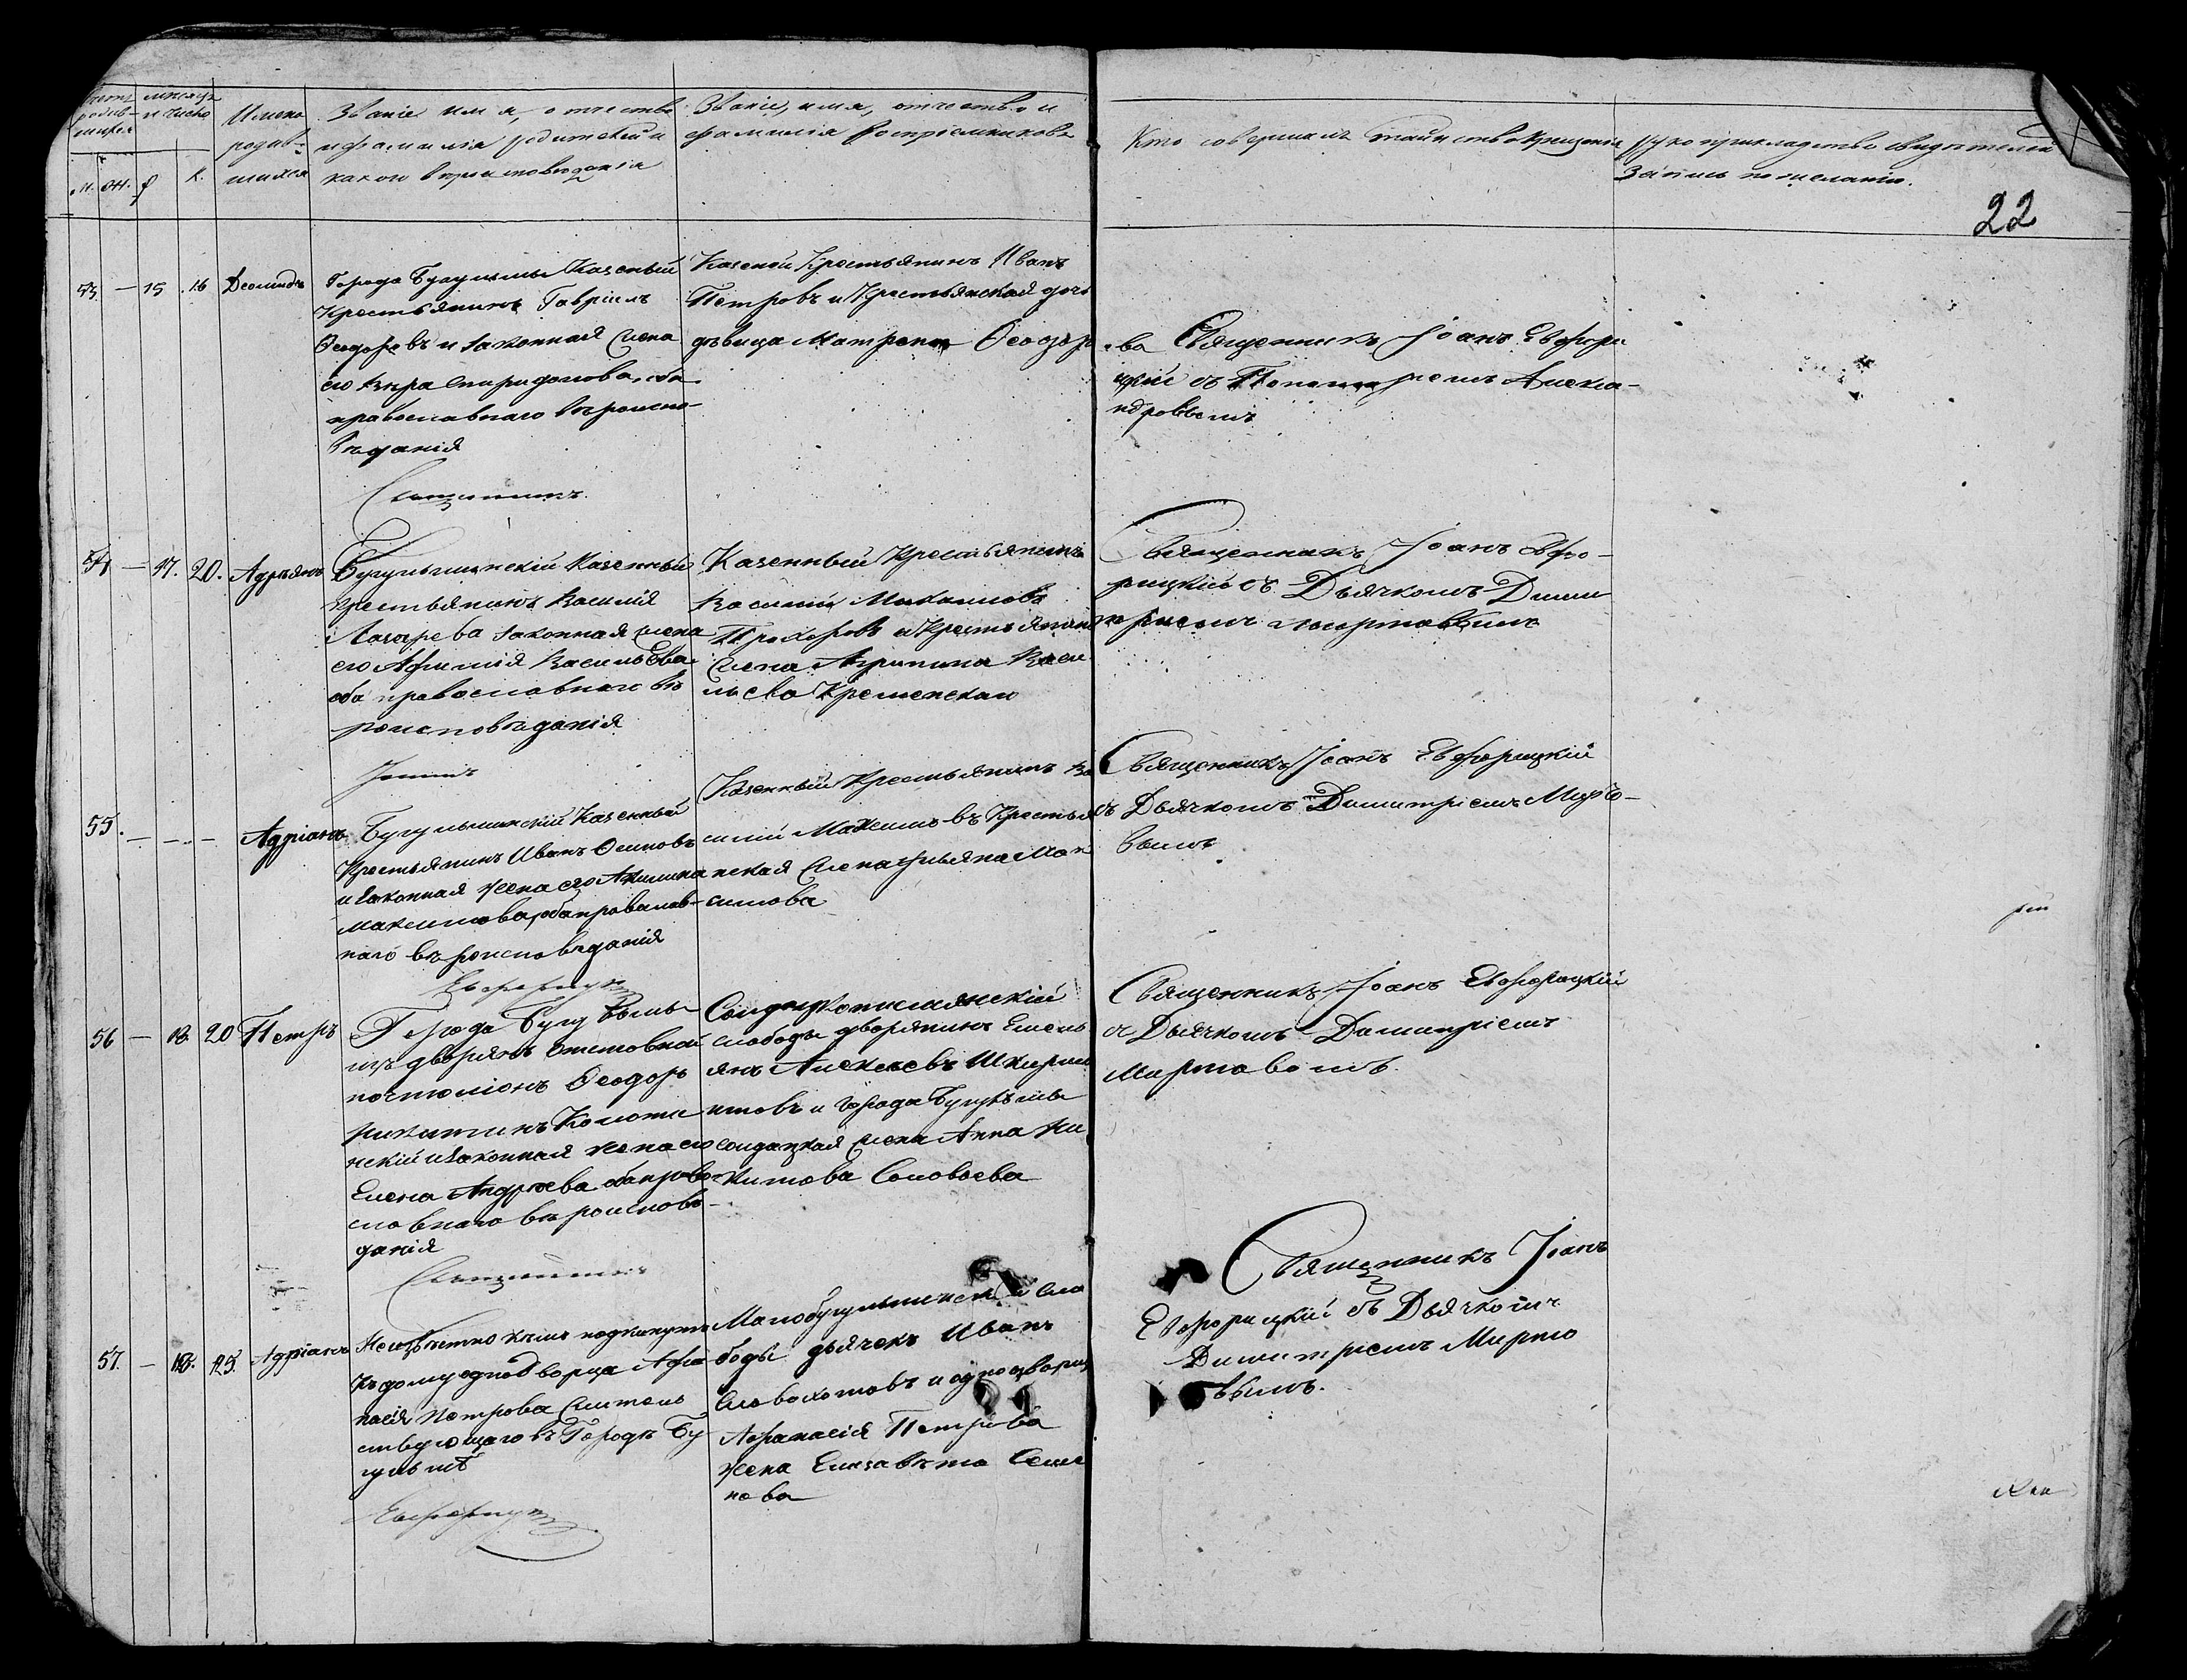 Счетъ родив-шихся
мѣсяцъ и число
Имена родив-шихся
Званіе имя, отчество
и фамилія родителей и
какого вѣроисповѣданія
Званіе, имя, отчество и
фамилія воспріемниковъ
Кто совершалъ таинство Крещенія
Рукоприкладство свидѣтелей
записи по желанію.
м. ж. р к.
22
53 — 15 16 Деомидъ
Города Бугульмы Казеный
Крестьянинъ Гавріилъ
Ѳеодоровъ и законная жена
его Вѣра Спиридонова, оба
православнаго вѣроиспо-
вѣданія
Казеной Крестьянинъ Иванъ
Петровъ и Крестьянская дочь
дѣвица Матрена Ѳеодоро
ва
Священникъ Іоанъ Евфори
цкій съ Пономаремъ Алекса-
ндровымъ
Священникъ
54 — 17. 20. Адріянъ
Бугульминскій Казенный
крестьянинъ Василія
Лазарева законная жена
его Афимія Васильева
оба православнаго вѣ
роисповѣданія
Казенный Крестьянинъ
Василій Михаиловъ
Прохоровъ и Крестьянина
жена Агрипина Васи
льева Кременская
Священникъ Іоанъ Евфо-
рицкій съ Дьячкомъ Дими
тріемъ Миртовымъ
Іоаннъ
55. — — — Адріанъ
Бугульминскій Казенный
Крестьянинъ Иванъ Осиповъ
и законная жена его Акилина
Максимова, оба православ-
наго вѣроисповѣданія
Казенный Крестьянинъ Ва
силій Максимовъ Крестья
нская жена Ульяна Мак
симова
Священникъ Іоанъ Евфорицкій
съ Дьячкомъ Димитріемъ Мирто-
вымъ
Евфорицкій
56 — 18. 20 Петръ
Города Бугульмы
изъ дворянъ отставной
почталіонъ Ѳеодоръ
Никитинъ
и законная жена его
Елена Андреева оба право
славнаго вѣроисповѣ-
данія
слободы дворянинъ Емель
янъ Алексѣевъ
и города Бугульмы
солдатская жена Анна Ни
китова Соловьева
Священникъ Іоанъ Евфорицкій
съ Дьячкомъ Димитріемъ
Миртовомъ.
Священникъ
57. — 18. 25. Адріанъ
Неизвѣстно кѣмъ подкинутъ
къ дому однодворца Афа
насія Петрова жительс
ствующаго въ Городѣ Бу
гульмѣ
Малобугульминской сло
боды дьячекъ Иванъ
Словохотовъ и однодворца
Афанасія Петрова
жена Елизавета Семе
нова
Священникъ Іоанъ
Евфорицкій съ Дьячкомъ
Димитріемъ Мирто
вымъ.
Евфорицкій